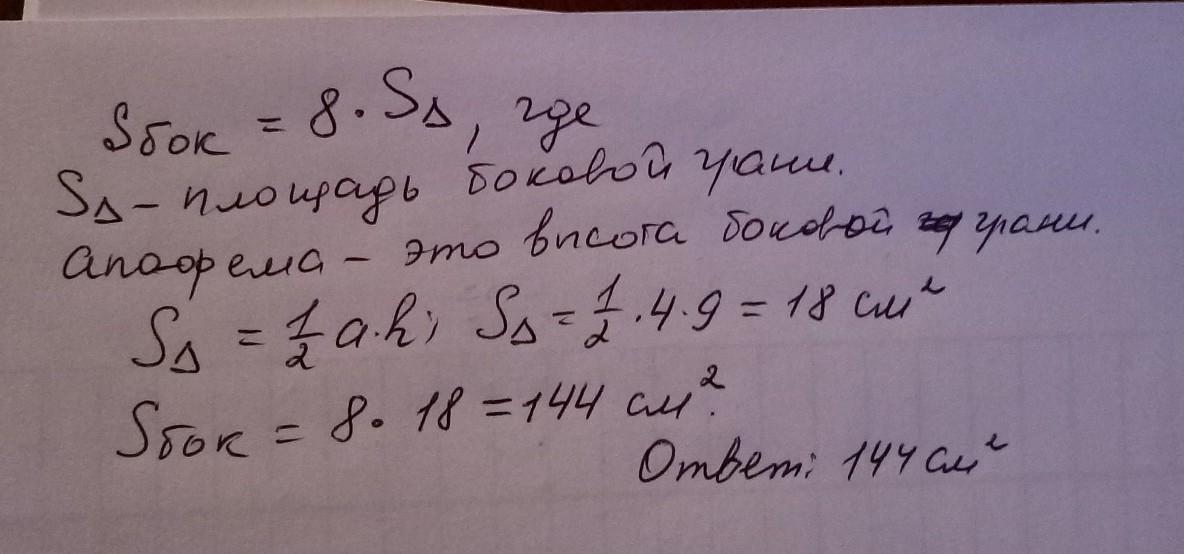 Sбок = 8 · S∆, где
S∆ – площадь боковой грани.
апофема – это высота боковой грани.
S∆ = 1/2 a·h; S∆ = 1/2 · 4 · 9 = 18 см²
Sбок = 8 · 18 = 144 см².
Ответ: 144 см²